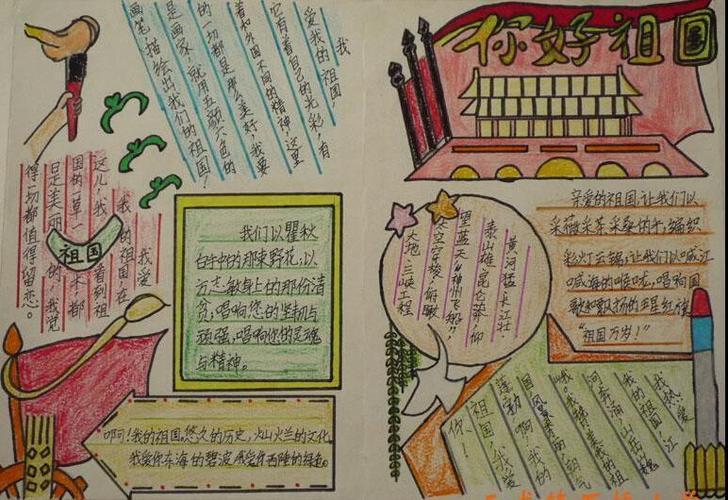 你好祖国
我
爱我的祖国！
它有着自己的光彩，有
着和外国不同的精神！这里
的一切都是那么美好，我要
是画家，就用五颜六色的
画笔，描绘出我们的祖国！
我爱
我的祖国，在
这儿，我看到祖
国的一草一木都
日是美丽的，我觉
得一切都值得留恋。
祖国
我们以瞿秋
白中的那束野花，以
方志敏身上的那份清
贫，唱响您的坚韧与
顽强，唱响你的灵魂
与精神。
啊！我的祖国，悠久的历史，火山火兰的文化
我爱你东海的碧波，我爱你西陲的绿色。
黄河猛，长江壮，
泰山雄，昆仑莽，仰
望蓝天“神州飞船”
太空穿梭，俯瞰
大地，三峡工程
亲爱的祖国，让我们以
采薇采茶采桑的手，编织
彩灯云锦，让我们以喊江
喊海的喉咙，唱响国
歌和飘扬的五星红旗
“祖国万岁！”
我热爱
我的祖国，江
河奔涌，山岳巍
峨，我赞美我的祖
国，风景秀丽，朝气
蓬勃，啊，我的
祖国，我爱
你！